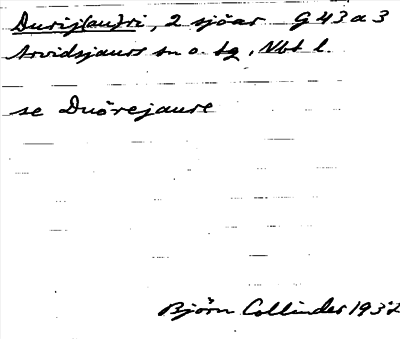 Durijaudri, 2 sjöar G 43 a 3
Arvidsjaurs sn o. tg, Vbt l.
se Duörejaure
Björn Collinder 1932